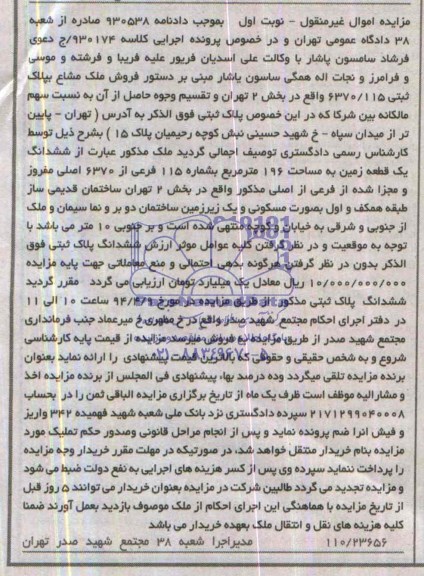 مزایده اموال غیرمنقول - نوبت اول   بموجب دادنامه ۹۳۰۵۳۸ صادره از شعبه
۳۸ دادگاه عمومی تهران و در خصوص پرونده اجرایی کلاسه ۹۳۰۱۷۴/ج دعوی
فرشاد ساسون پاشار با وکالت علی اسدیان فریور علیه فریبا و فرشته و موسی
و فرامرز و نجات اله همگی ساسون پاشار مبنی بر دستور فروش ملک مشاع بپلاک
ثبتی ۶۳۷۰/۱۱۵ واقع در بخش ۲ تهران و تقسیم وجوه حاصل از آن به نسبت سهم
مالکانه بین شرکا که در این خصوص پلاک ثبتی فوق الذکر به آدرس ( تهران - پایین
تر از میدان سپاه - خ شهید حسینی نبش کوچه رحیمیان پلاک ۱۵ ) بشرح ذیل توسط
کارشناس رسمی دادگستری توصیف اجمالی گردید ملک مذکور عبارت از ششدانگ
یک قطعه زمین به مساحت ۱۹۶ مترمربع بشماره ۱۱۵ فرعی از ۶۳۷۰ اصلی مفروز
و مجزا شده از فرعی از اصلی مذکور واقع در بخش ۲ تهران ساختمان قدیمی ساز
طبقه همکف و اول بصورت مسکونی و یک زیرزمین ساختمان دو بر و نما سیمان و ملک
از جنوبی و شرقی به خیابان و کوچه منتهی شده است و بر جنوبی ۱۰ متر می باشد با
توجه به موقعیت و در نظر گرفتن کلیه عوامل موثر ارزش ششدانگ پلاک ثبتی فوق
الذکر بدون در نظر گرفتن هرگونه بدهی احتمالی و منع معاملاتی جهت پایه مزایده
۱۰/۰۰۰/۰۰۰/۰۰۰ ریال معادل یک میلیارد تومان ارزیابی می گردد   مقرر گردید
ششدانگ  پلاک ثبتی مذکور  از طریق مزایده در مورخ ۹۴/۴/۹ ساعت ۱۰ الی ۱۱
در  دفتر اجرای احکام مجتمع شهید صدر واقع در خ مطهری خ میرعماد جنب فرمانداری
مجتمع شهید صدر از طریق مزایده به فروش میرسد مزایده از قیمت پایه کارشناسی
شروع و به شخص حقیقی و حقوقی که بالاترین قیمت پیشنهادی  را ارائه نماید بعنوان
برنده مزایده تلقی میگردد وده درصد بها، پیشنهادی فی المجلس از برنده مزایده اخذ
و مشارالیه موظف است ظرف یک ماه از تاریخ برگزاری مزایده الباقی ثمن را در  بحساب
۲۱۷۱۲۹۹۰۴۰۰۰۸ سپرده دادگستری نزد بانک ملی شعبه شهید فهمیده ۳۴۲ واریز
و فیش انرا ضم پرونده نماید و پس از انجام مراحل قانونی وصدور حکم تملیک مورد
مزایده بنام خریدار منتقل خواهد شد، در صورتیکه در مهلت مقرر خریدار وجه مزایده
را پرداخت ننماید سپرده وی پس از کسر هزینه های اجرایی به نفع دولت ضبط می شود
و مزایده تجدید می گردد طالبین شرکت در مزایده بعنوان خریدار می توانند ۵ روز قبل
از تاریخ مزایده با هماهنگی این اجرای احکام از ملک موصوف بازدید بعمل آورند ضمنا
کلیه هزینه های نقل و انتقال ملک بعهده خریدار می باشد
۱۱۰/۲۳۶۵۶   مدیراجرا شعبه ۳۸ مجتمع شهید صدر تهران